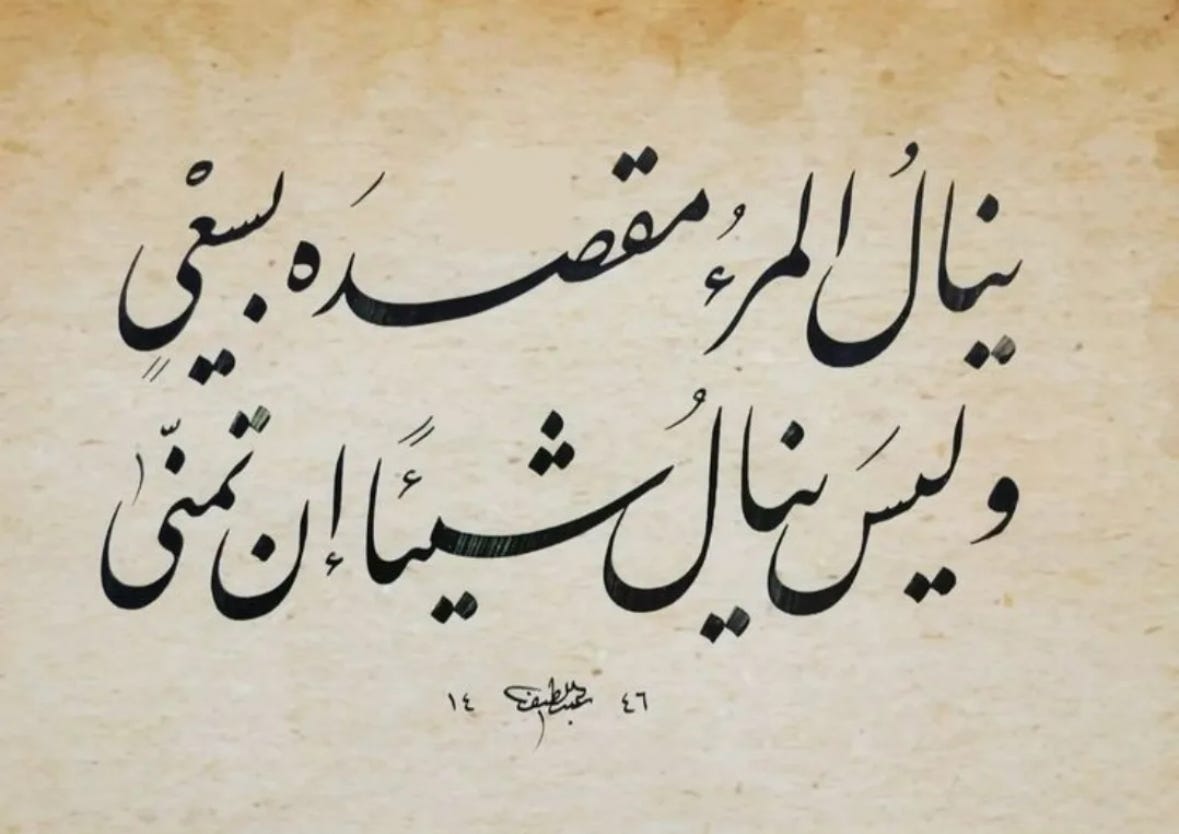 ينالُ المرءُ مقصدَه بسعْيٍ
وليسَ ينالُ شيئًا إن تمنّى
٤٦ عبداللطيف ١٤